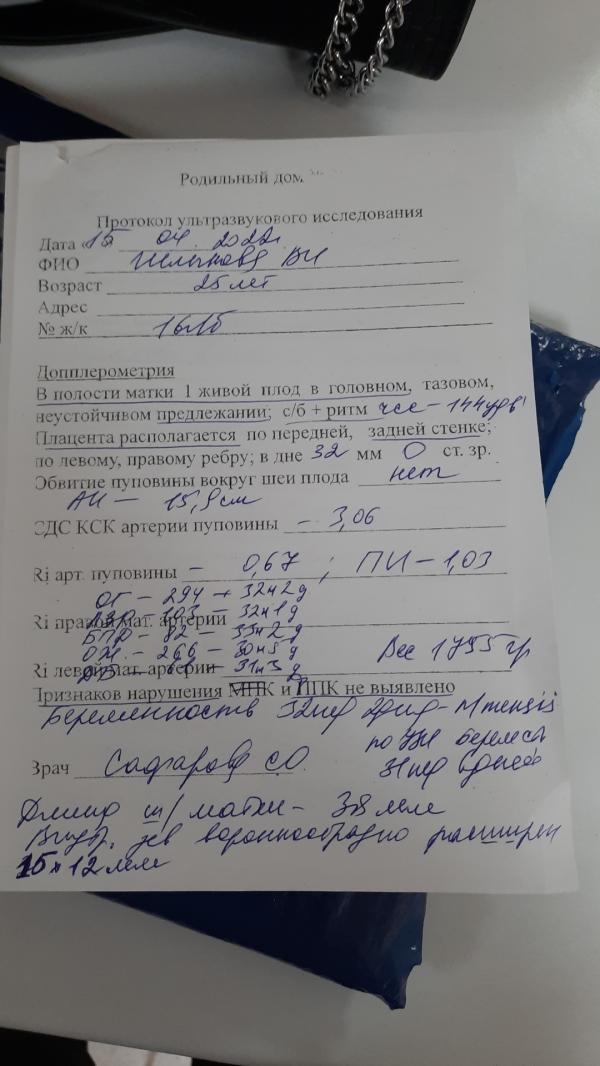 Родильный дом
Протокол ультразвукового исследования
Дата «15» 04. 2022г
ФИО ВН
Возраст 25 лет
Адрес
№ ж/к
Допплерометрия
В полости матки 1 живой плод в головном, тазовом,
неустойчивом предлежании; с/б + ритм чсс – 144 уд
Плацента располагается по передней, задней стенке;
по левому, правому ребру; в дне 32 мм 0 ст. зр.
Обвитие пуповины вокруг шеи плода нет
АИ – 15,9 см
СДС КСК артерии пуповины – 3,06
Ri арт. пуповины – 0,67 ; ПИ – 1,03
ОГ – 294 – 32н2д
Ri правой мат. артерии 103 – 32н1д
БПР – 82 – 33н2д
ОЖ – 266 – 30н5д Вес 1795 гр
Ri левой мат. артерии 31н3д
Признаков нарушения МПК и ППК не выявлено
Беременность 32нед
по УЗИ
Врач
31 нед
Длина ш/матки – 38 мм
Внутр. зев воронкообразно расширен
15 х 12 мм